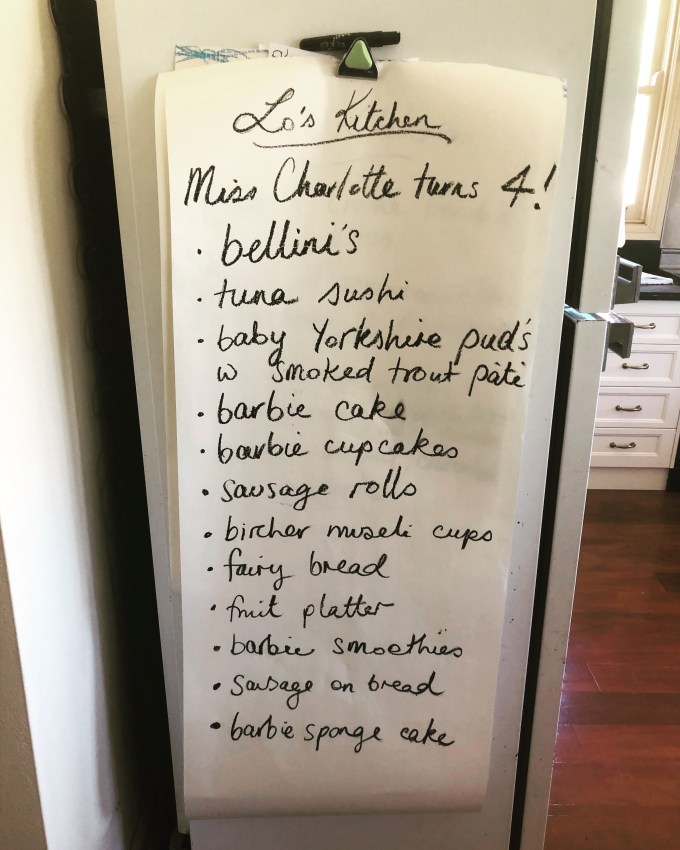 Lo's Kitchen
Miss Charlotte turns 4!
· bellini's
· tuna sushi
· baby Yorkshire pud's
w smoked trout pâté
· barbie cake
· barbie cupcakes
· sausage rolls
· bircher museli cups
· fairy bread
· fruit platter
· barbie smoothies
· sausage on bread
· barbie sponge cake